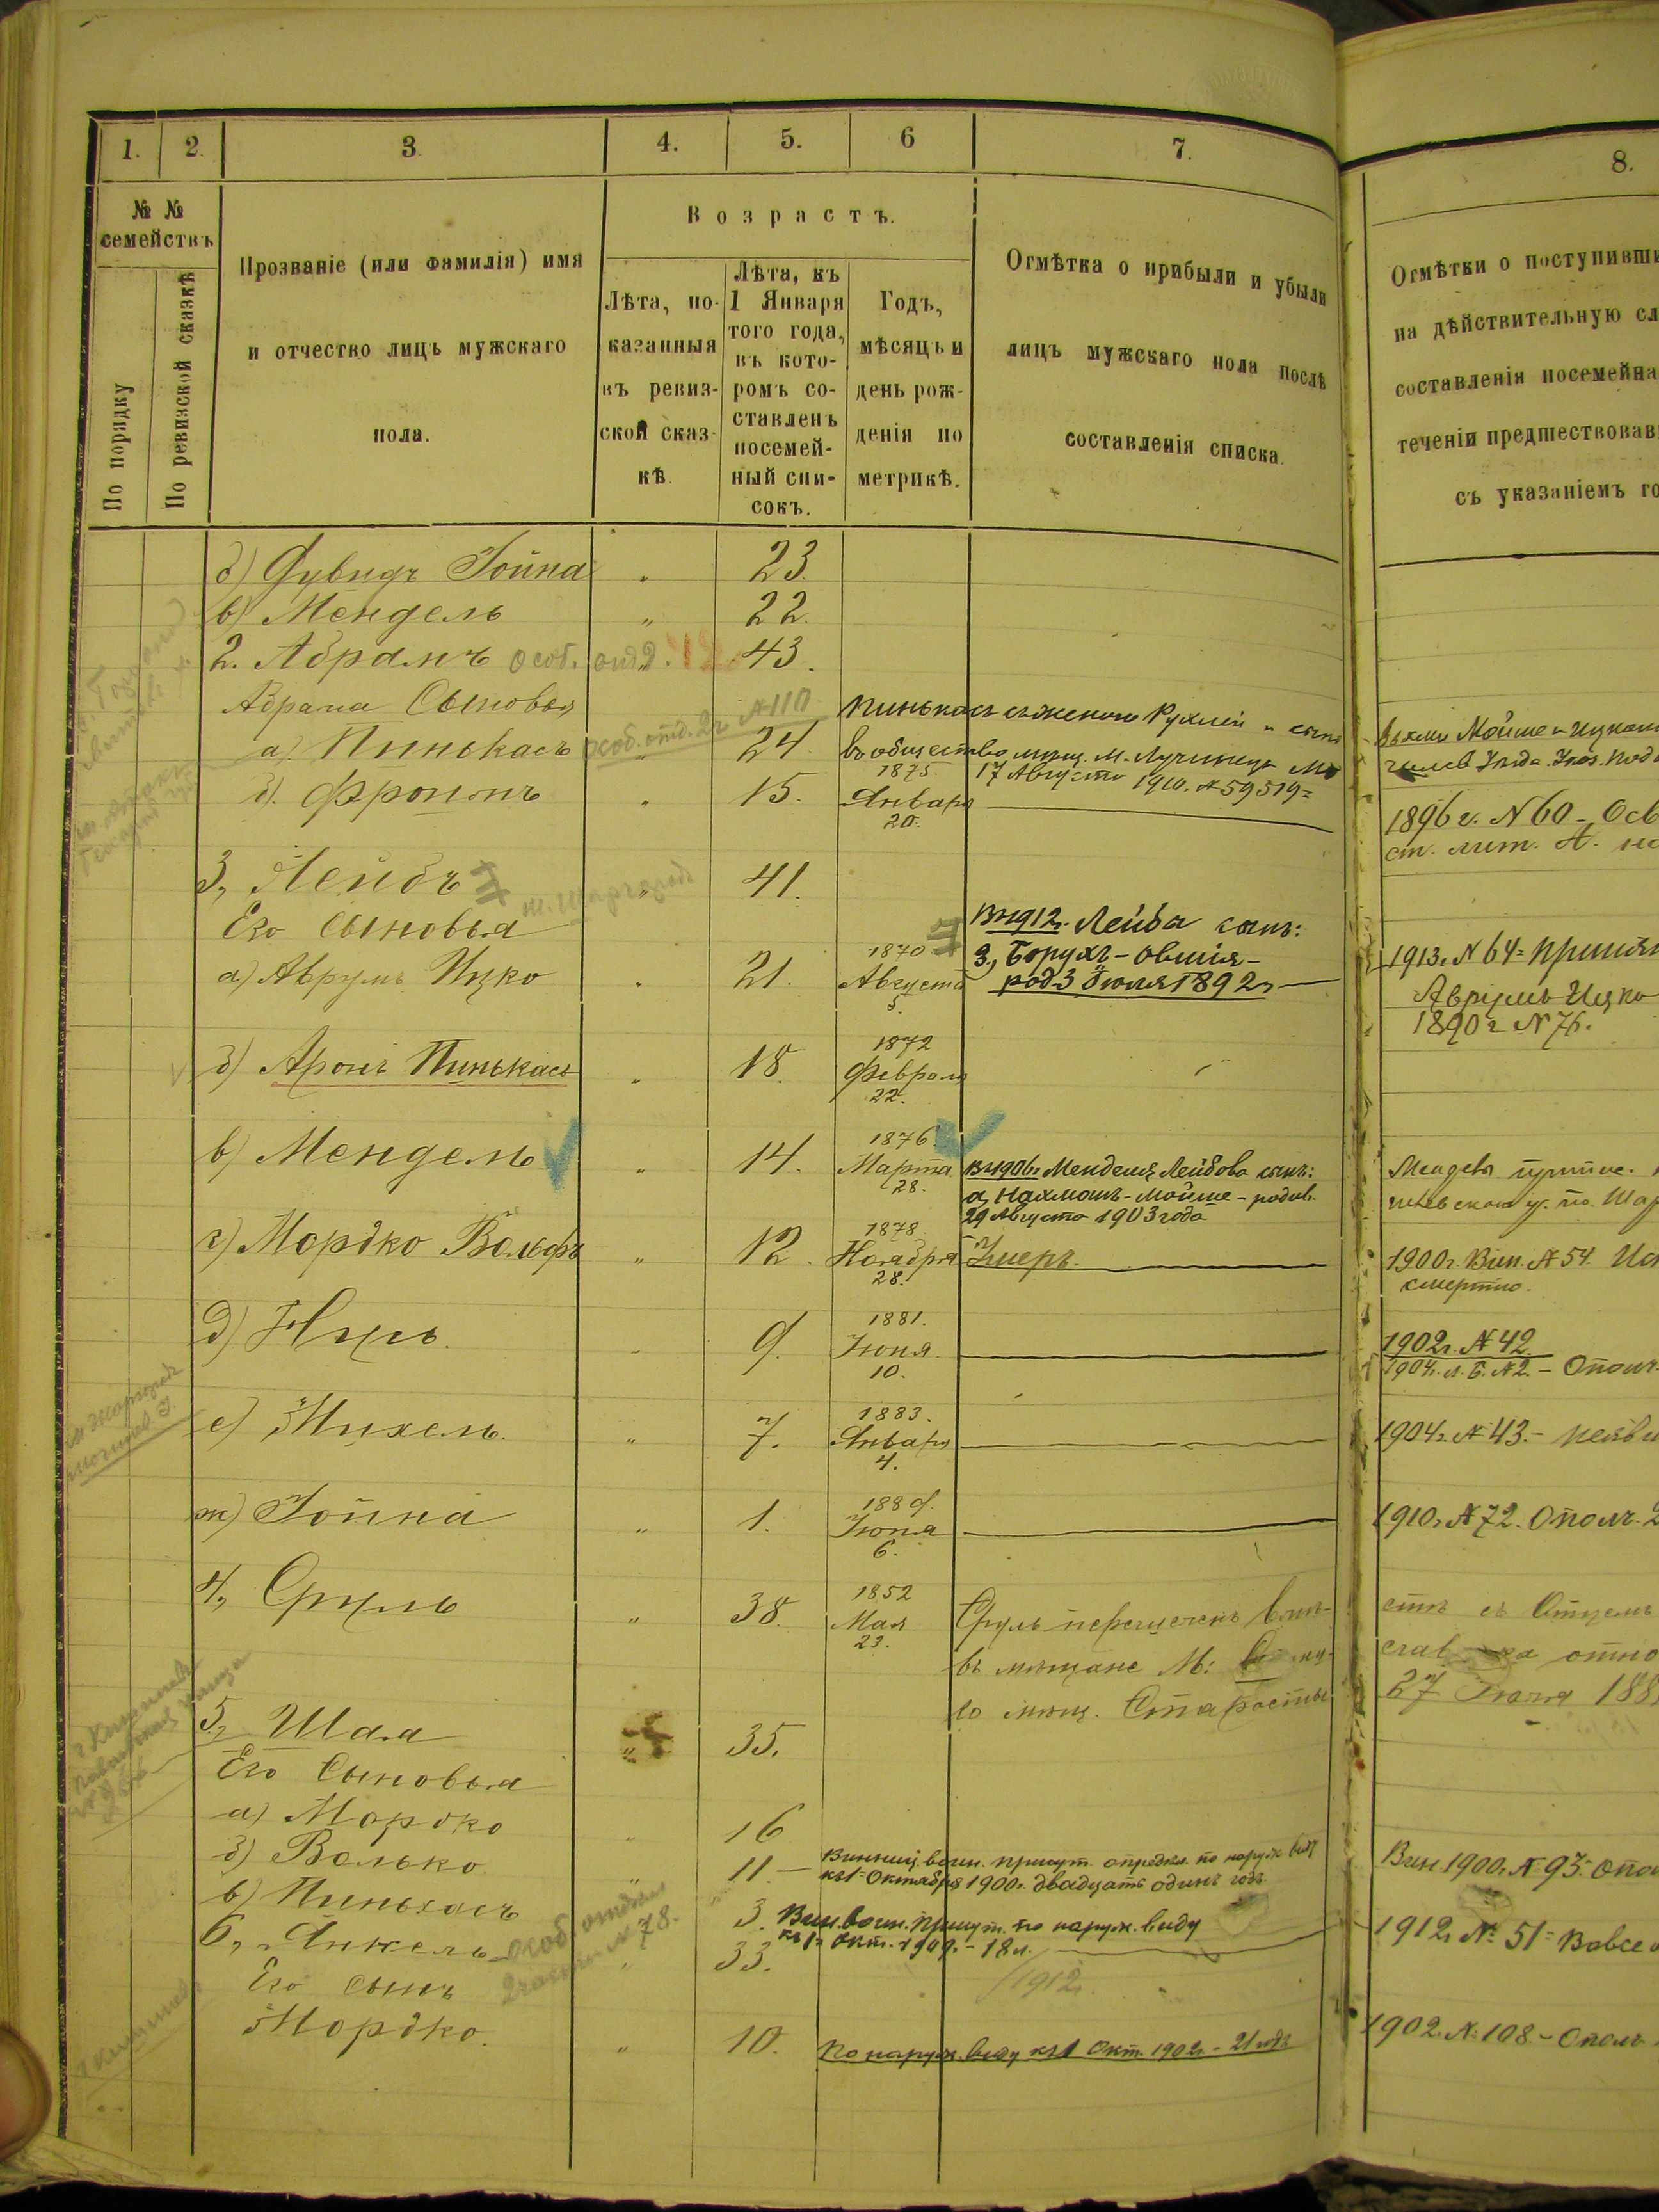 1. 2. 3. 4. 5. 6 7. 8.
№ № семействъ
По порядку
По ревизской сказкѣ
Прозваніе (или фамилія) имя
и отчество лицъ мужскаго
пола.
Возрастъ.
Лѣта, по-
казанныя
въ ревиз-
ской сказ-
кѣ.
Лѣта, къ
1 Января
того года,
въ кото-
ромъ со-
ставленъ
посемей-
ный спи-
сокъ.
Годъ,
мѣсяцъ и
день рож-
денія по
метрикѣ.
Отмѣтка о прибыли и убыли
лицъ мужскаго пола послѣ
составленія списка.
Отмѣтки о поступивши
на дѣйствительную сл
составленія посемейна
теченіи предшествовав
съ указаніемъ го
б) Дувидъ Іойна " 23.
в) Мендель " 22.
2. Абрамъ особ. отд. " 43.
Абрама Сыновья
а) Пинькасъ особ. отд. 2ч №110 24
Пинькасъ съ женою Рухлей и сыно
въ общество мѣщ. м. Лучинецъ Мо
17 Августа 1910. №59519=
б). Фроимъ " 15. 1875 Января 20.
1896 г. №60 - Осв
ст. лит. А. на
3, Лейбъ " 41.
Его Сыновья
Вн1912г. Лейба сынъ:
3, Борухъ-Овшія-
род. 3 Іюля 1892г
1913г №64=Принят
а) Аврумъ Ицко " 21. 1870 Августа 5.
Аврумъ Ицко
1890 г №76.
б) Аронъ Пинькасъ " 18. 1872 Февраля 22.
в) Мендель " 14. 1876 Марта 28.
Вн1906г Менделя Лейбова сынъ:
а, Нахманъ-Мойше-родив.
29 Августа 1903 года
г) Мордко Вольфъ " 12. 1878 Ноября 28. Умеръ.
1900г. Вин. №54.
смертію.
д) Нусъ. " 9. 1881. Іюня 10.
1902г. №42
1904г. л. Б. №2. - Ополч.
е) Михель. " 7. 1883. Января 4.
1904г №43. - неяви
ж) Іойна " 1. 1889. Іюня 6.
1910г №72. Ополч. 2
4, Сруль " 38. 1852 Мая 23.
Сруль перечисленъ
въ мѣщане М:
го мѣщ. Старосты
стѣ съ Отцемъ
отно
27 188
5, Шая " 35.
Его Сыновья
а) Мордко " 16
б) Волько " 11 -
Винниц. воин. присут. опредѣл. по наруж. виду
къ 1 Октября 1900г. двадцать одинъ годъ.
Вин 1900г. №93. Опол
в) Пинькасъ 3.
Вин. воин. присут. по наруж. виду
къ 1 окт. 1909г. - 18 л.
1912г №51= Вовсе о
6, Янкель особ. отдѣл 2 части №78. " 33.
1912г.
Его сынъ
Мордко. " 10. По наруж. виду къ 1 Окт. 1902г. - 21 годъ
1902г. №108 - Ополч.